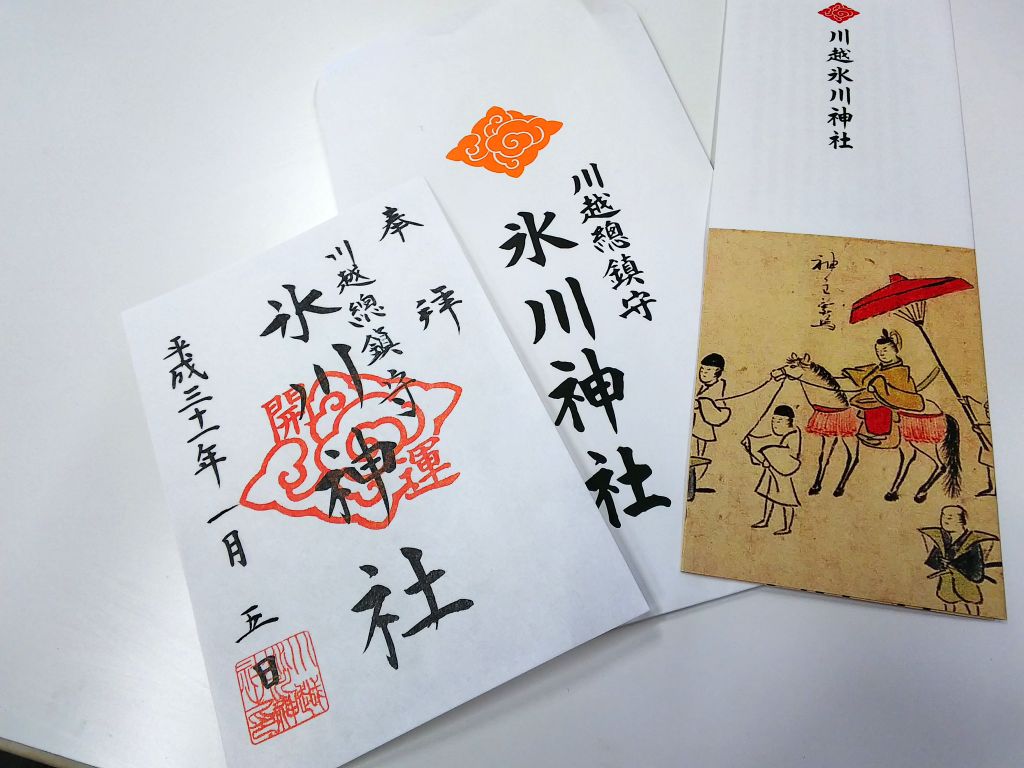 奉拝
川越總鎮守
氷川神社
開運
平成三十一年一月五日
川越總鎮守
氷川神社
川越氷川神社
神主乗馬